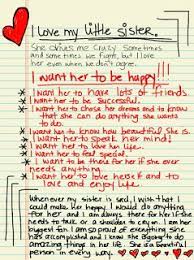 I love my little sister.
She drives me crazy sometimes
and sometimes we fight, but I love
her even when we don't agree.
I want her to be happy!!!
* I want her to have lots of friends.
* I want her to be successful.
* I want her to chase her dreams and to know
that she can do anything she wants
to do.
* I want her to know how beautiful she is.
* I want her to speak her mind!
* I want her to love life.
* I want her to feel special.
* I want to be there for her if she ever
needs anything.
* I want her to love herself and to
love and enjoy life.
Whenever my sister is sad, I wish that I
could make her happy. I would do anything
for her and I am always there for her if she
needs to talk or a shoulder to cry on. I am her
biggest fan. I am so proud of everything she
has accomplished and I know she will do
amazing things in her life. She is a beautiful
person in every way.